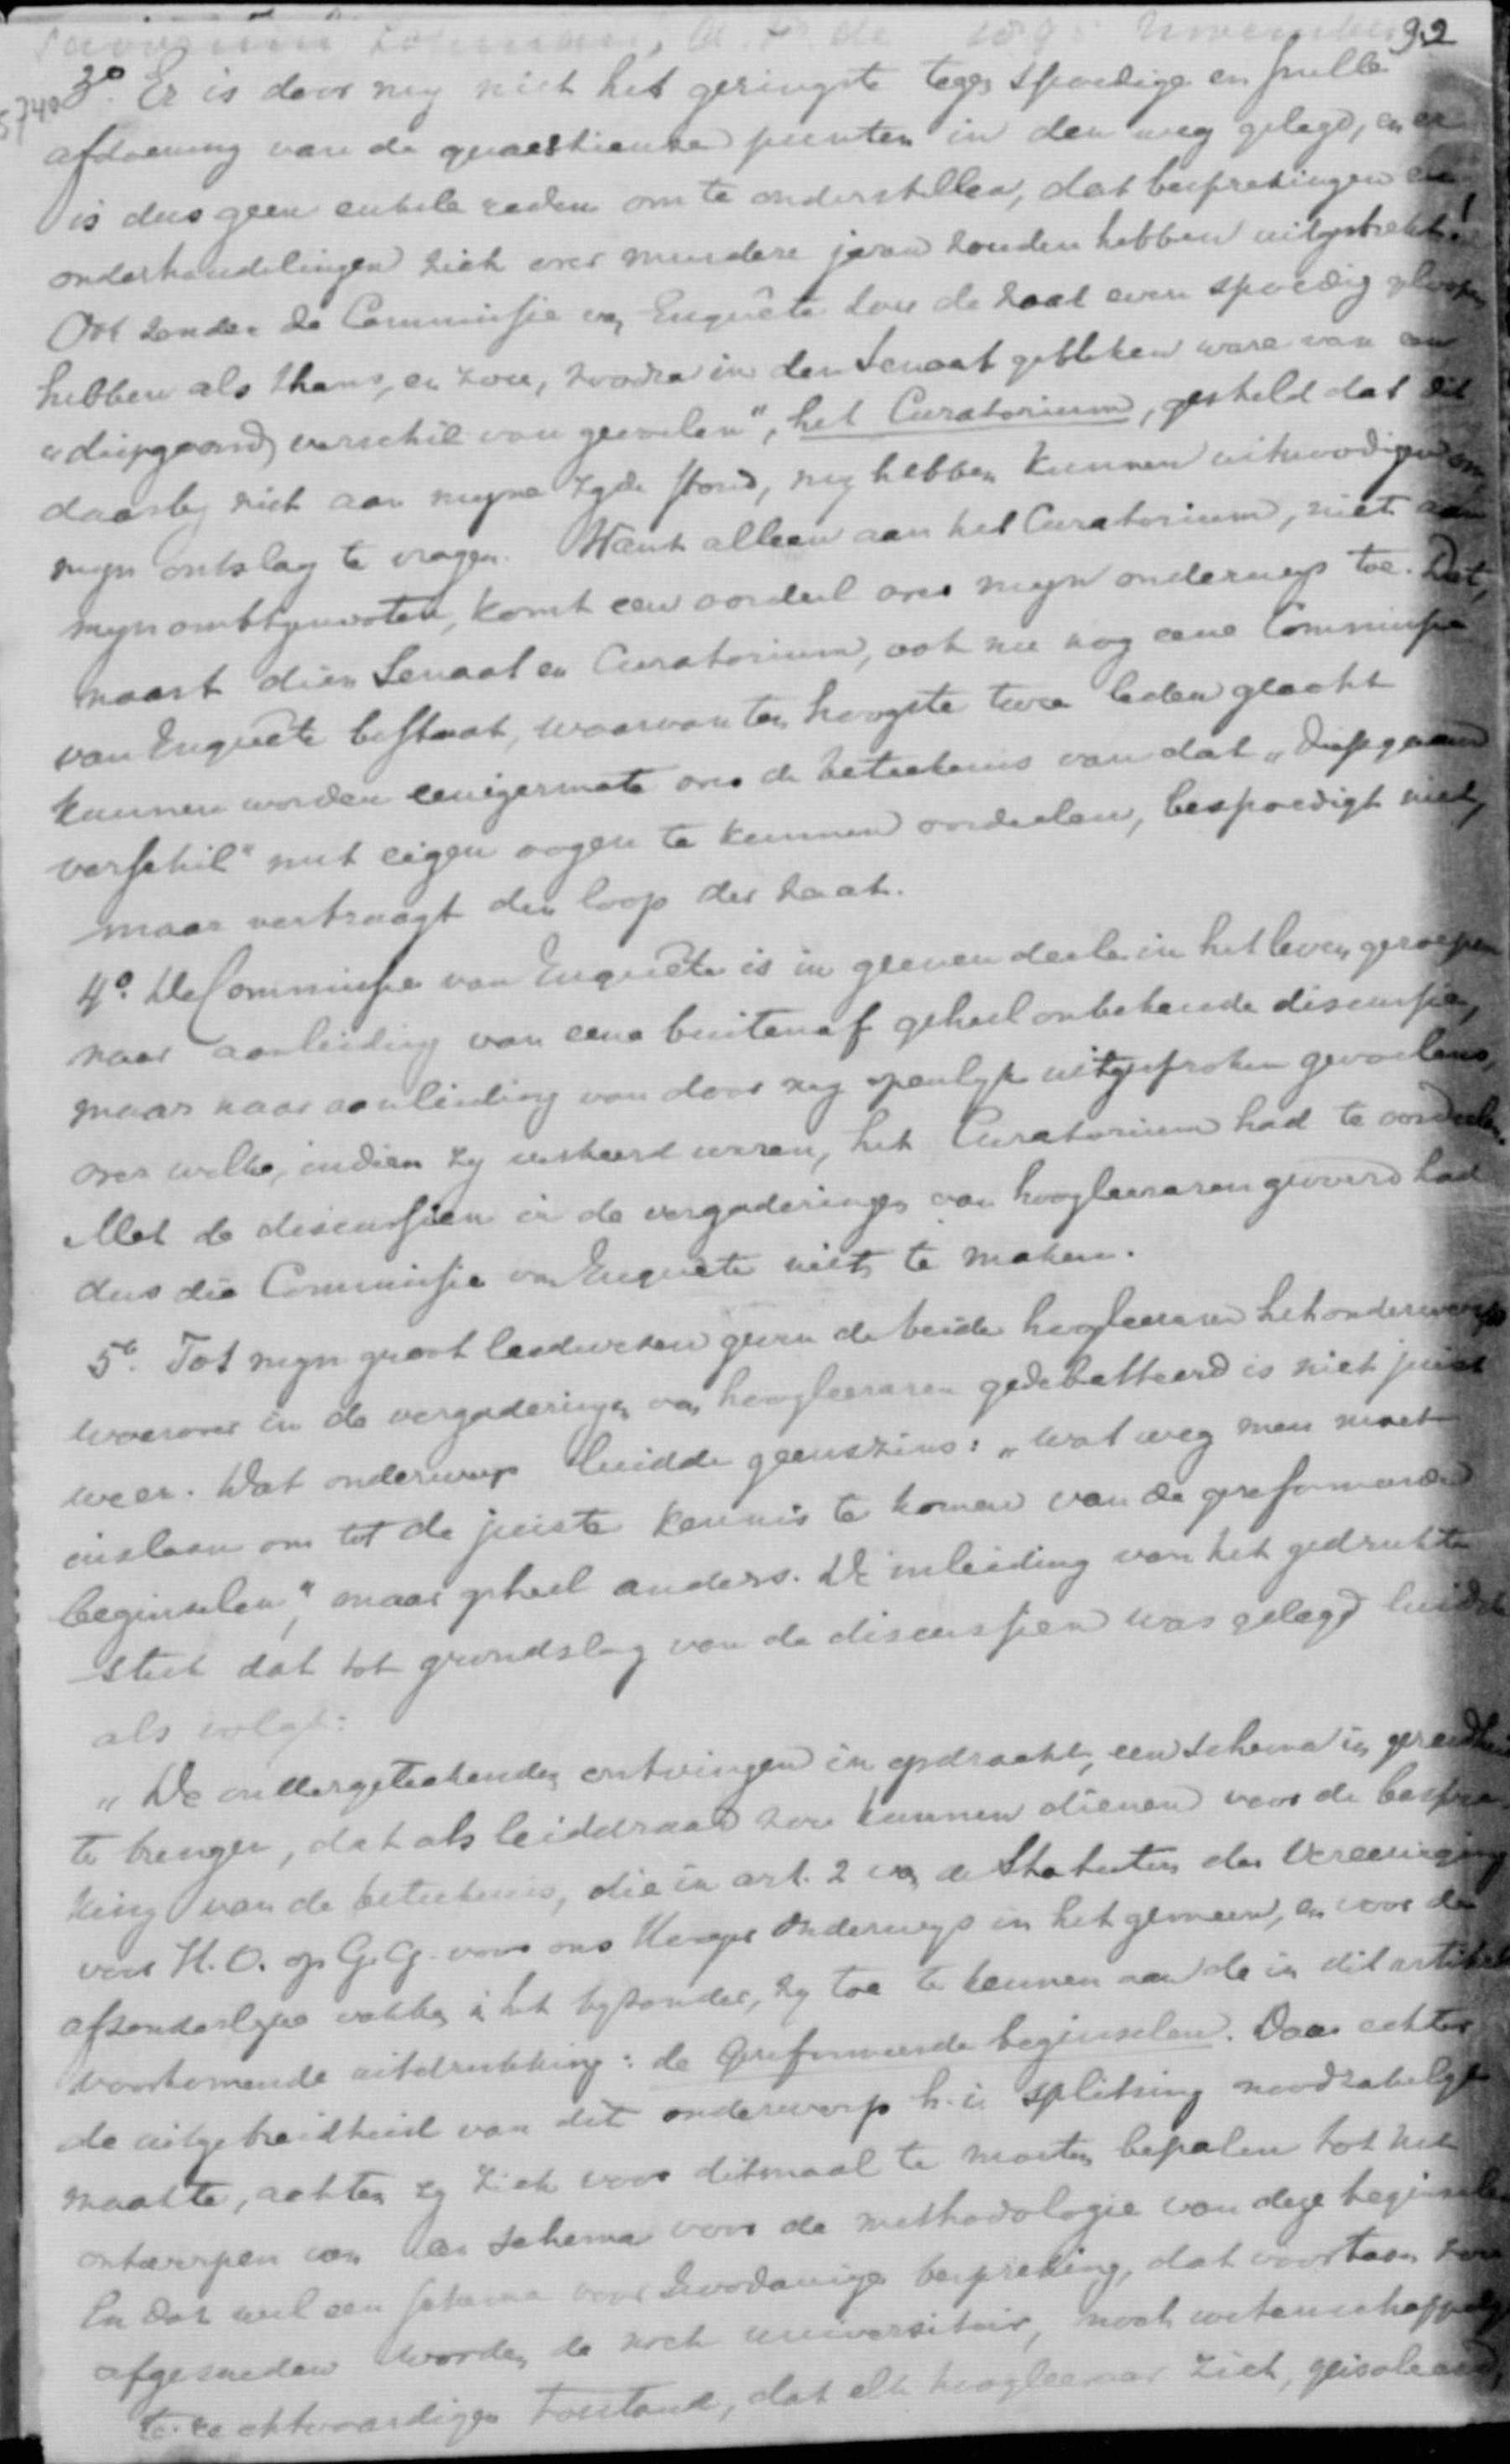 Savornin Lohman, A F. de 1895 November 92
5740
3º. Er is door my niet het geringste tegen spoedige en snelle
afdoening van de quaestieuse punten in den weg gelegd, en er
is dus geen enkele reden om te onderstellen, dat besprekingen en
onderhandelingen zich over meerdere jaren zouden hebben uitgestrekt!
Ook zonder de Commissie van Enquête zou de zaak even spoedig geloopen
hebben als thans, en zou, zoodra in den Senaat gebleken ware van een
"diepgaand verschil van gevoelen", het Curatorium, gesteld dat dit
daarby niet aan myne zyde stond, my hebben kunnen uitnoodigen om
myn ontslag te vragen. Want alleen aan het Curatorium, niet aan
myn ambtgenooten, komt een oordeel over myn onderwys toe. Dat,
naast dien Senaat en Curatorium, ook nu nog eene Commissie
van Enquête bestaat, waarvan ten hoogste twee leden geacht
kunnen worden eenigermate over de beteekenis van dat "diepgaand
verschil" met eigen oogen te kunnen oordeelen, bespoedigt niet,
maar vertraagt den loop der zaak.
4º. De Commissie van Enquête is in geenen deele in het leven geroepen
naar aanleiding van eene buitenaf geheel onbekende discussie,
maar naar aanleiding van door my openlyk uitgesproken gevoelens,
over welke, indien zy verkeerd waren, het Curatorium had te oordeelen.
Met de discussien in de vergaderingen van hoogleeraren gevoerd had
dus die Commissie van Enquête niets te maken.
5º. Tot myn groot leedwezen geven de beide hoogleeraren het onderwerp
waarover in de vergaderingen van hoogleeraren gedebatteerd is niet juist
weer. Dat onderwerp luidde geenszins: "wat weg men moet
inslaan om tot de juiste kennis te komen van de gereformeerde
beginselen", maar geheel anders. De inleiding van het gedrukte
stuk dat tot grondslag van de discussien was gelegd luidde
als volgt:
"De ondergeteekenden ontvingen in opdracht, een schema in gereedheid
te brengen, dat als leiddraad zou kunnen dienen voor de bespre-
king van de beteekenis, die in art. 2 van de Statuten der Vereeniging
voor H.O. op G.G. voor ons Hooger Onderwys in het gemeen, en voor de
afzonderlyke vakken in het byzonder, zy toe te kennen aan de in dit artikel
voorkomende uitdrukking: de Gereformeerde beginselen. Daar echter
de uitgebreidheid van dit onderwerp h. i. splitsing noodzakelyk
maakte, achten zy zich voor ditmaal te moeten bepalen tot het
ontwerpen van een schema voor de methodologie van deze beginselen
En dat wel een schema voor zoodanige bespreking, dat voortaan zou
afgesneden worden de noch universitair, noch wetenschappelyk
te rechtvaardigen toestand, dat elk hoogleeraar zich, geisoleerd,